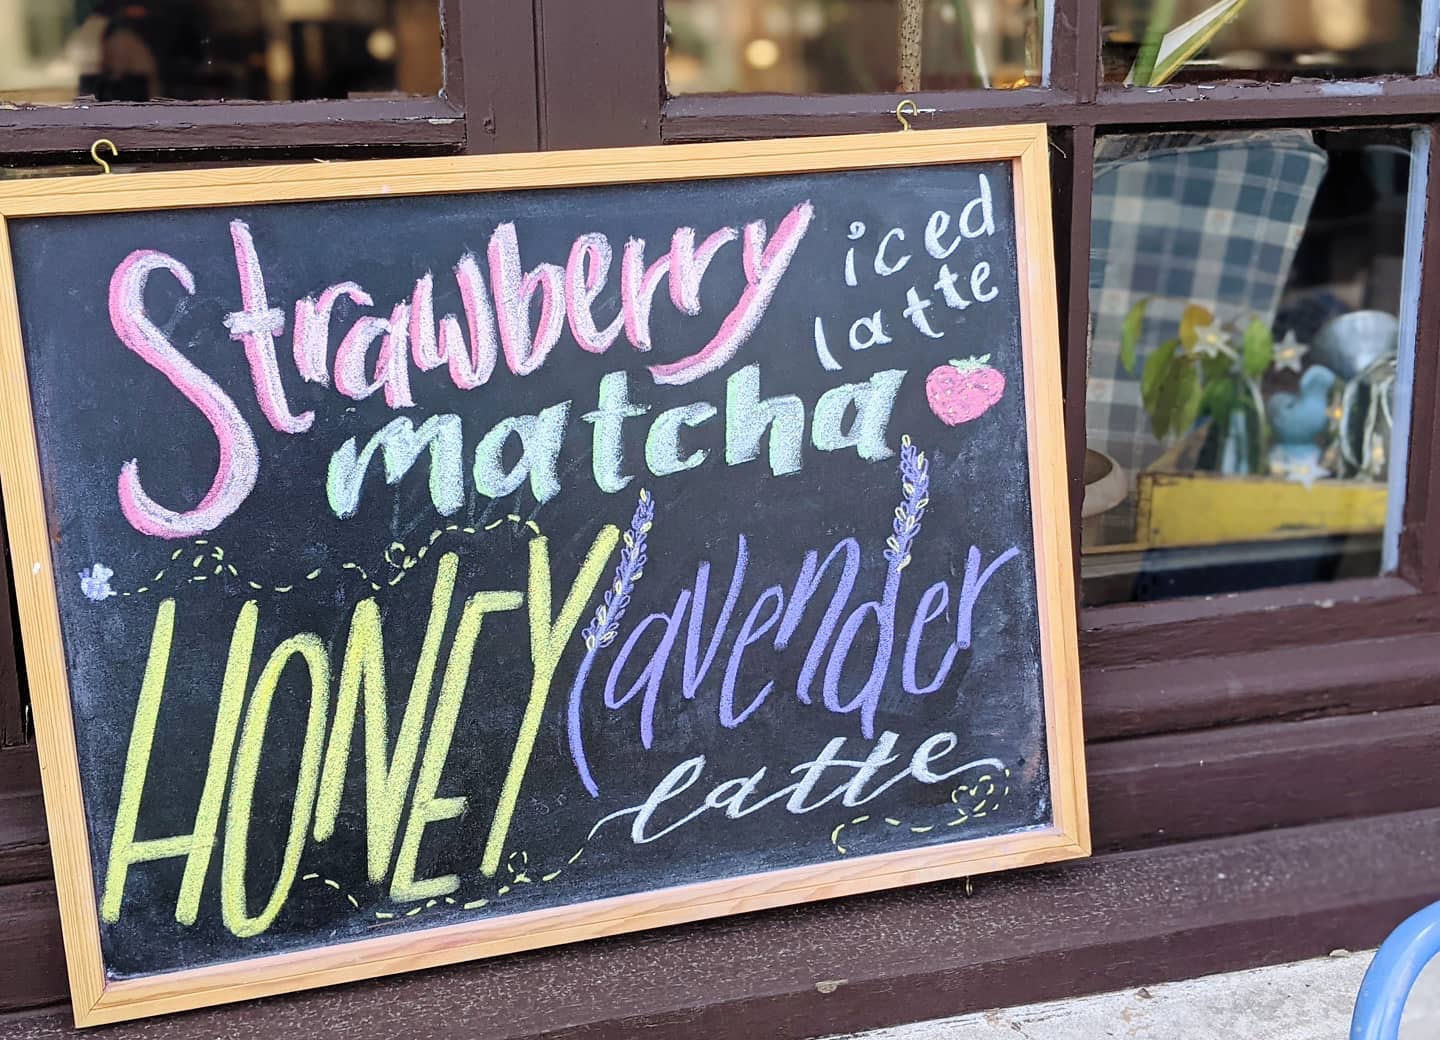 Strawberry
iced
latte
matcha
HONEY lavender
latte